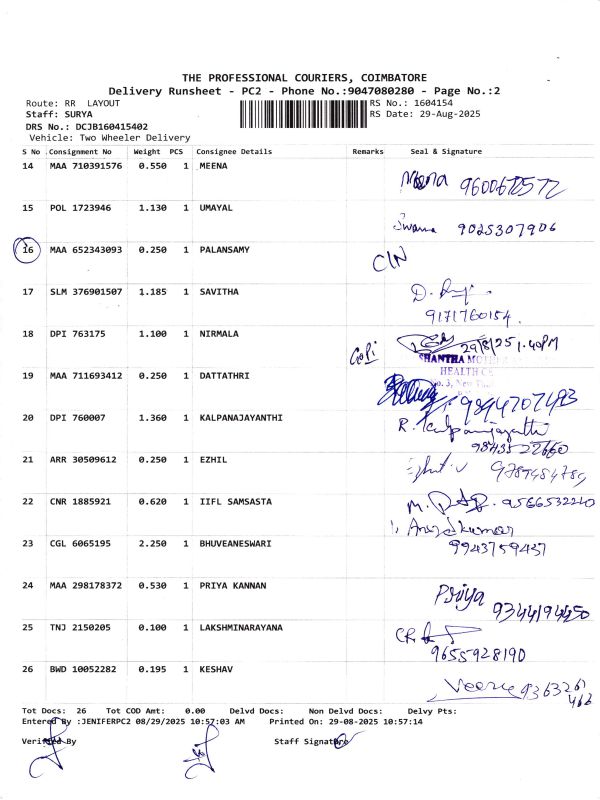 THE PROFESSIONAL COURIERS, COIMBATORE
Delivery Runsheet - PC2 - Phone No.:9047080280 - Page No.:2
Route: RR LAYOUT
RS No.: 1604154
Staff: SURYA
RS Date: 29-Aug-2025
DRS No.: DCJB160415402
Vehicle: Two Wheeler Delivery
S No Consignment No Weight PCS Consignee Details Remarks Seal & Signature
14 MAA 710391576 0.550 1 MEENA Meena
15 POL 1723946 1.130 1 UMAYAL 9025307906
16 MAA 652343093 0.250 1 PALANSAMY C/N
17 SLM 376901507 1.185 1 SAVITHA
9171760154.
18 DPI 763175 1.100 1 NIRMALA Gopi 29/8/25 1.40PM
SHANTHA
HEALTH
19 MAA 711693412 0.250 1 DATTATHRI 9894707493
20 DPI 760007 1.360 1 KALPANAJAYANTHI R. Kalpanajayanthi
21 ARR 30509612 0.250 1 EZHIL
22 CNR 1885921 0.620 1 IIFL SAMSASTA 9566532240
23 CGL 6065195 2.250 1 BHUVEANESWARI
9943759437
24 MAA 298178372 0.530 1 PRIYA KANNAN Priya
9344194450
25 TNJ 2150205 0.100 1 LAKSHMINARAYANA
9655928190
26 BWD 10052282 0.195 1 KESHAV
Tot Docs: 26 Tot COD Amt: 0.00 Delvd Docs: Non Delvd Docs: Delvy Pts:
Entered By :JENIFERPC2 08/29/2025 10:57:03 AM Printed On: 29-08-2025 10:57:14
Verified By Staff Signature